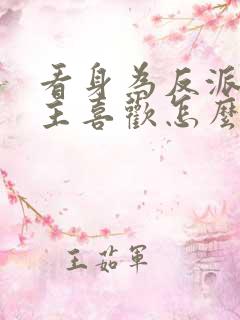 看身為反派
主喜歡怎麼
王茹軍